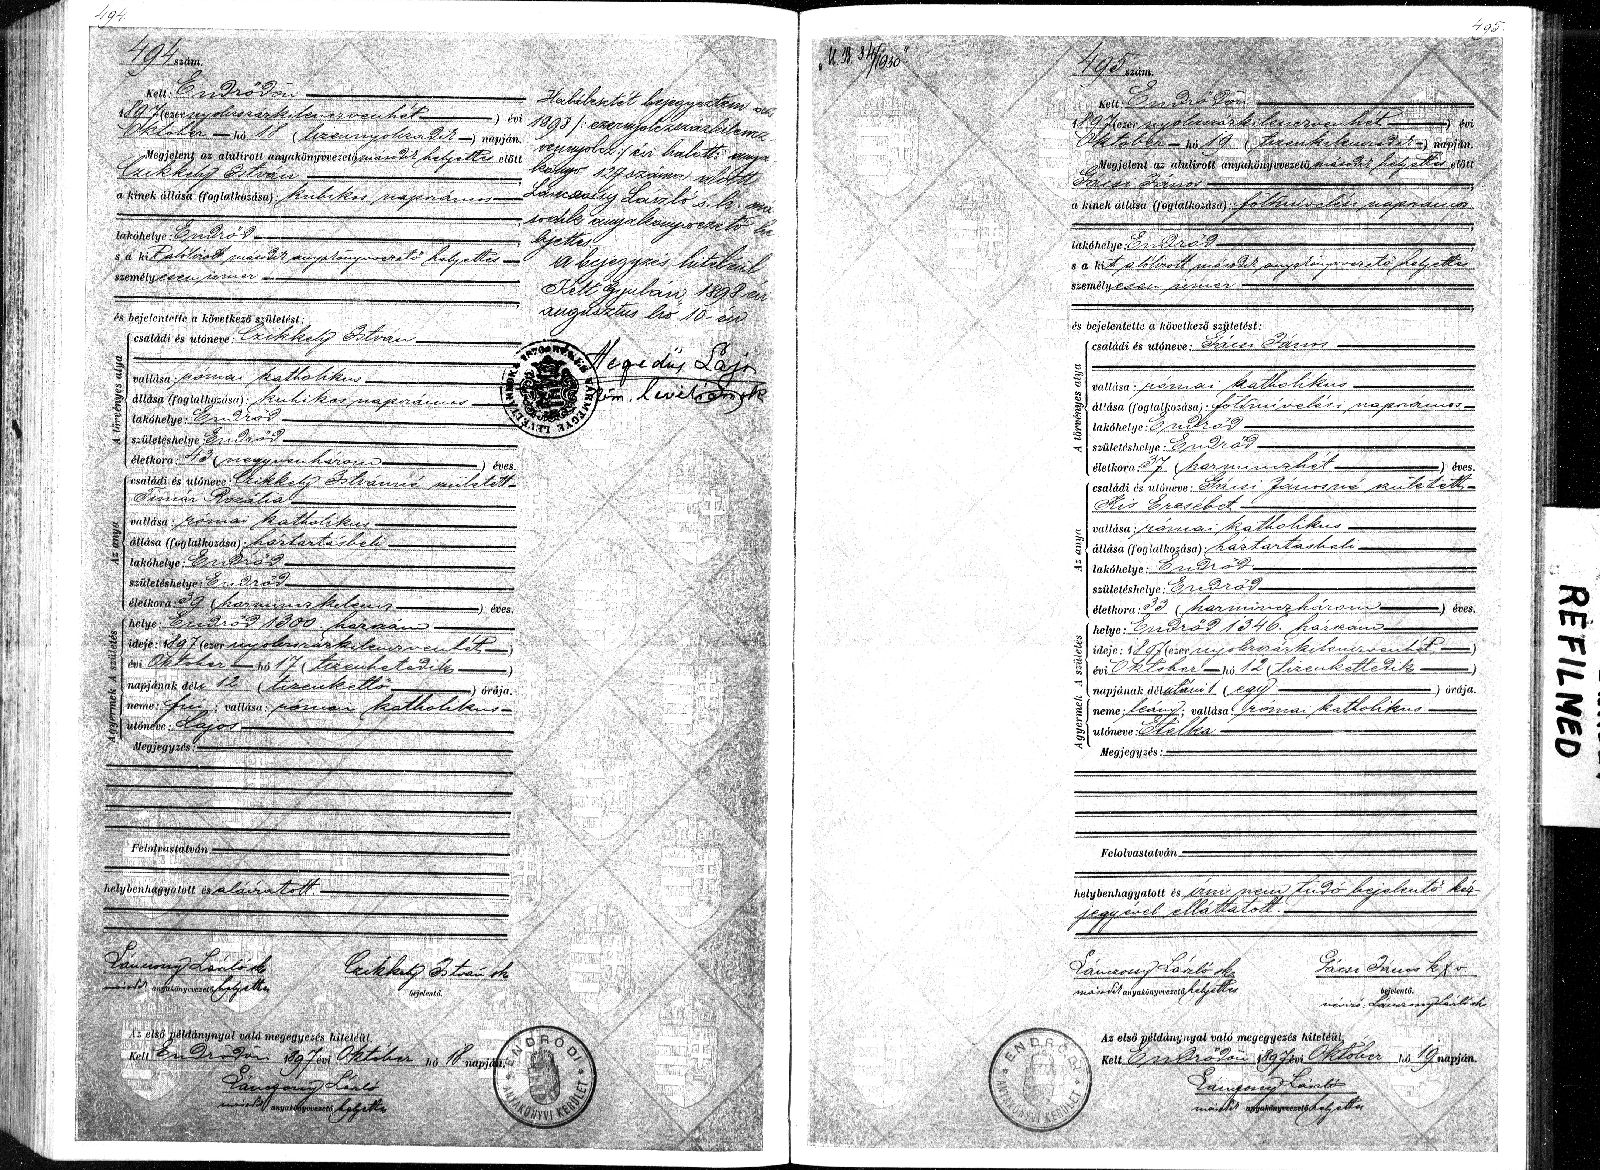 494.
494 szám.
Kelt: Endrődön
1897 (ezernyolcszázkilencvenhét) évi
Október hó 18 (tizennyolcadik) napján.
Megjelent az alulirott anyakönyvvezető másod helyettes előtt
Czikkely István
a kinek állása (foglalkozása): kubikos napszámos
lakóhelye: Endrőd
s a kit alólirott másod anyakönyvvezető helyettes
személyesen ismer
és bejelentette a következő születést:
A törvényes atya
családi és utóneve: Czikkely István
vallása: római katholikus
állása (foglalkozása): kubikos napszámos
lakóhelye: Endrőd
születéshelye: Endrőd
életkora: 43 (negyvenhárom) éves.
Az anya
családi és utóneve: Czikkely Istvánné született
Timár Rozália
vallása: római katholikus
állása (foglalkozása): háztartásbeli
lakóhelye: Endrőd
születéshelye: Endrőd
életkora: 39 (harminczkilencz) éves.
A születés
helye: Endrőd 1300. házszám
ideje: 1897 (ezernyolcszázkilencvenhét)
évi Október hó 17 (tizenhetedik)
napjának déli 12 (tizenkettő) órája.
A gyermek
neme: fiu; vallása: római katholikus
utóneve: Lajos
Megjegyzés:
Felolvastatván
helybenhagyatott és aláiratott.
Lánczony László sk
másod anyakönyvvezető helyettes
Czikkely István sk
bejelentő.
Az első példánynyal való megegyezés hiteléül
Kelt Endrődön 1897 évi Október hó 18 napján.
Lánczony László
másod anyakönyvvezető helyettes
ENDRŐDI ANYAKÖNYVI KERÜLET
Halálesetét bejegyeztem az
1998/:
könyv 129 szám
Lánczony László s. k. má
sodik anyakönyvvezető he
lyettes
A bejegyzés hiteléül
Kelt Gyulán, 1898 évi
augusztus hó 10-én
Hegedüs Lajos
levéltárnok
495.
495 szám.
Kelt: Endrődön
1897 (ezernyolcszázkilencvenhét) évi
Október hó 19 (tizenkilencedik) napján.
Megjelent az alulirott anyakönyvvezető másod helyettes előtt
Gácsi János
a kinek állása (foglalkozása): földmüvelési napszámos
lakóhelye: Endrőd
s a kit alólirott másod anyakönyvvezető helyettes
személyesen ismer
és bejelentette a következő születést:
A törvényes atya
családi és utóneve: Gácsi János
vallása: római katholikus
állása (foglalkozása): földmüvelési napszámos
lakóhelye: Endrőd
születéshelye: Endrőd
életkora: 37 (harminczhét) éves.
Az anya
családi és utóneve: Gácsi Jánosné született
Kis Erzsébet
vallása: római katholikus
állása (foglalkozása): háztartásbeli
lakóhelye: Endrőd
születéshelye: Endrőd
életkora: 33 (harminczhárom) éves.
A születés
helye: Endrőd 1346. házszám
ideje: 1897 (ezernyolcszázkilencvenhét)
évi Október hó 12 (tizenkettedik)
napjának délutáni 1 (egy) órája.
A gyermek
neme: leány; vallása: római katholikus
utóneve: Etelka
Megjegyzés:
Felolvastatván
helybenhagyatott és irni nem tudó bejelentő kéz-
jegyével elláttatott.
Lánczony László sk
másod anyakönyvvezető helyettes
Gácsi János k x v
bejelentő.
Lánczony László sk
Az első példánynyal való megegyezés hiteléül,
Kelt Endrődön 1897 évi Október hó 19 napján.
Lánczony László
másod anyakönyvvezető helyettes
ENDRŐDI ANYAKÖNYVI KERÜLET
REFILMED